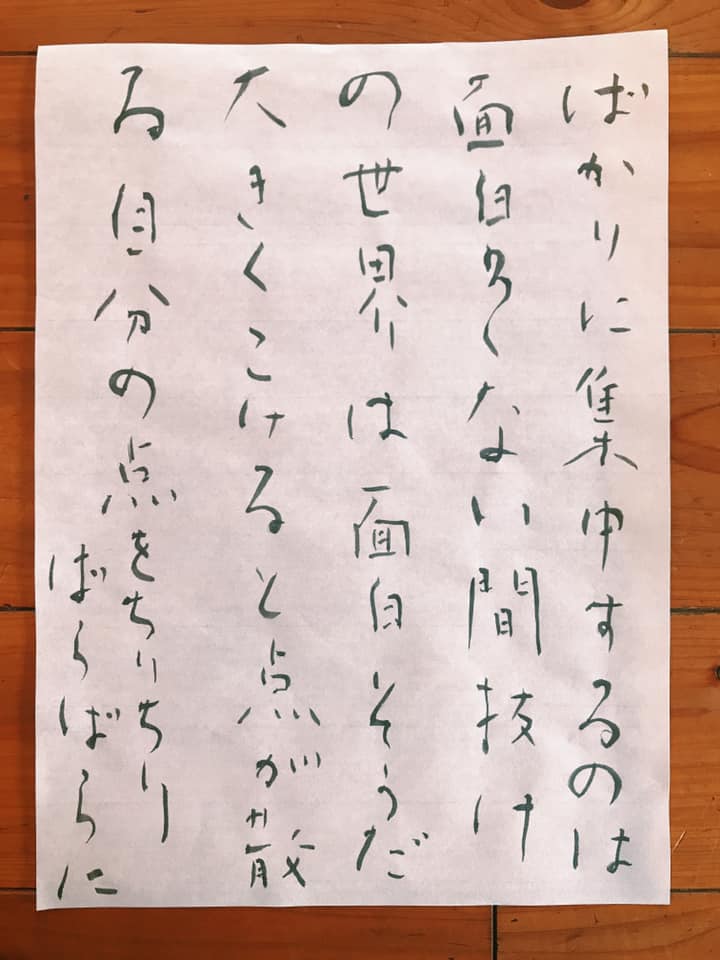 ばかりに集中するのは
面白くない間抜け
の世界は面白そうだ
大きくこけると点が散
る自分の点をちりちり
ばらばらに